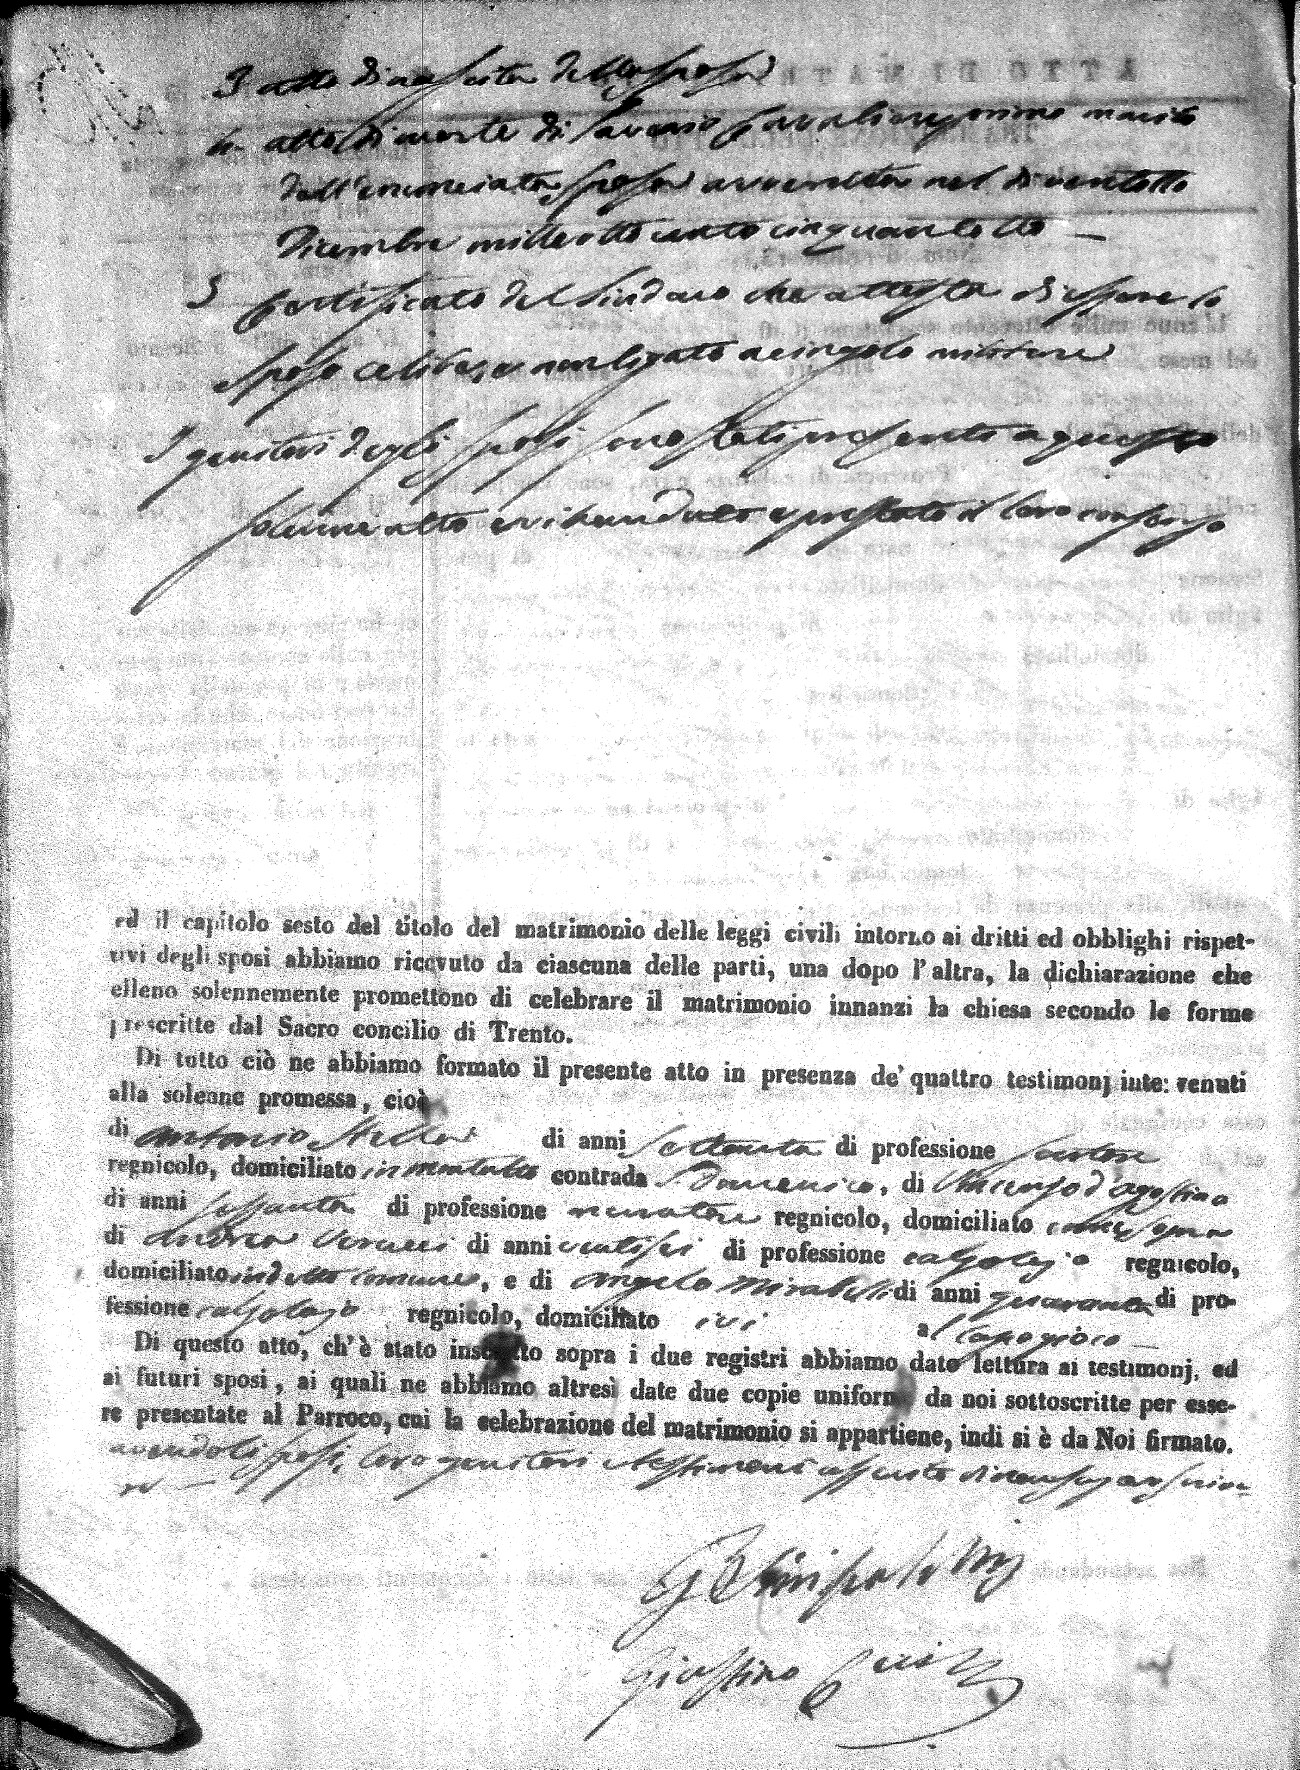 3 atto di nascita della sposa
4 atto di morte di Saverio Cavaliere primo marito
dell'enunciata sposa avvenuta nel dì ventotto
Dicembre mille otto cento cinquantotto —
5 Certificato del Sindaco che attesta di essere lo
sposo celibe, e non ligato a cingolo militare
I genitori degli sposi sono stati presenti a questo
solenne atto ed hanno prestato il loro consenso
ed il capitolo sesto del titolo del matrimonio delle leggi civili intorno ai dritti ed obblighi rispet-
tivi degli sposi abbiamo ricevuto da ciascuna delle parti, una dopo l'altra, la dichiarazione che
elleno solennemente promettono di celebrare il matrimonio innanzi la chiesa secondo le forme
prescritte dal Sacro concilio di Trento.
Di tutto ciò ne abbiamo formato il presente atto in presenza de' quattro testimonj inte: venuti
alla solenne promessa, cioè
di Antonio di anni settanta di professione sartore
regnicolo, domiciliato in contrada S. Domenico, di Vincenzo d'Agostino
di anni sessanta di professione muratore regnicolo, domiciliato come sopra
di Andrea di anni ventisei di professione calzolajo regnicolo,
domiciliato in detto comune, e di Angelo Mirabelli di anni quaranta di pro-
fessione calzolajo regnicolo, domiciliato ivi al Capogioco —
Di questo atto, ch'è stato inscritto sopra i due registri abbiamo dato lettura ai testimonj, ed
ai futuri sposi, ai quali ne abbiamo altresì date due copie uniformi da noi sottoscritte per esse-
re presentate al Parroco, cui la celebrazione del matrimonio si appartiene, indi si è da Noi firmato.
avendo li sposi, loro genitori e testimoni asserito di non saper scrive-
re —
Giustino